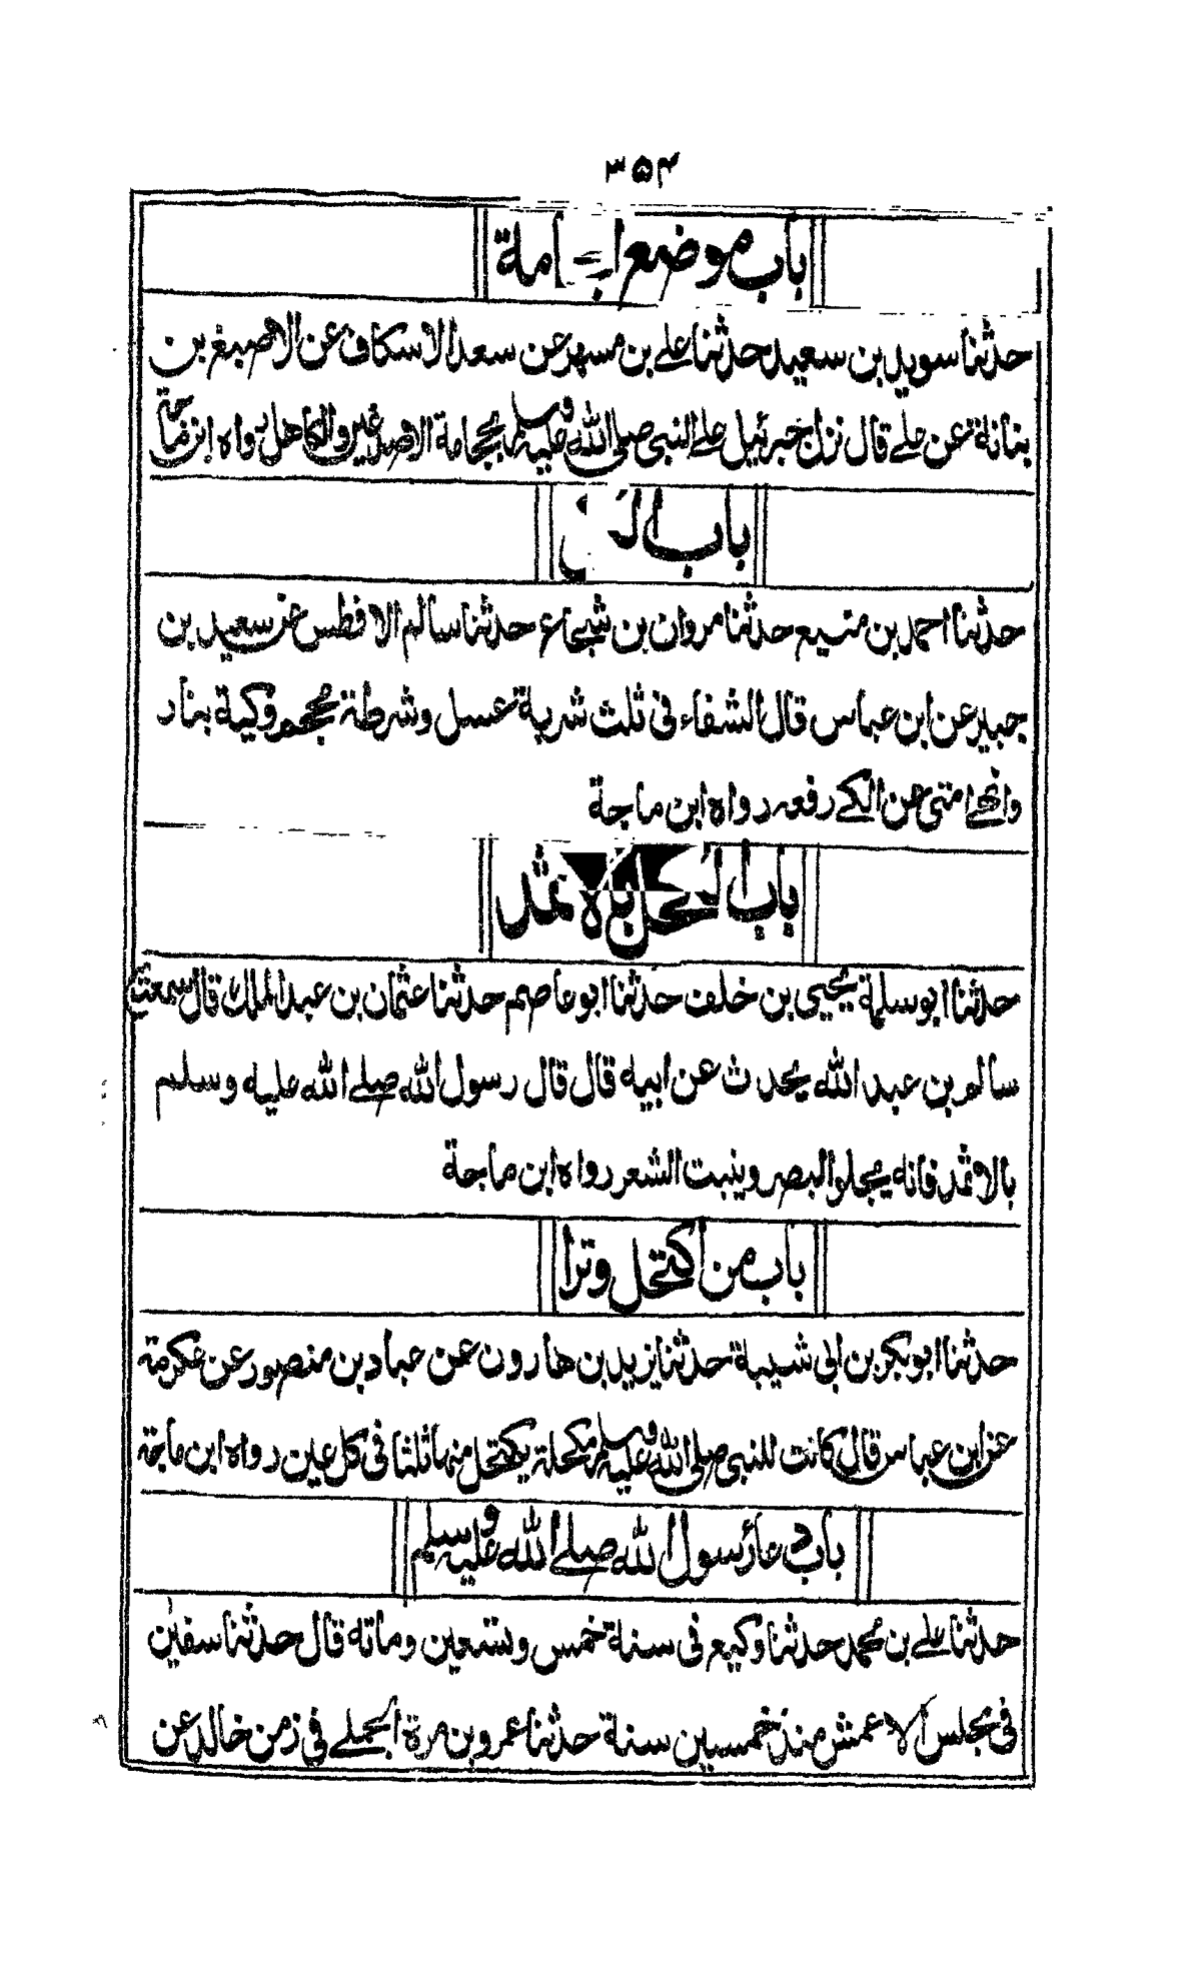 ۳۵۴
باب موضع امة
حدثنا سويد بن سعيد حدثنا علے بن مسهر عن سعد الاسكاف عن الاصبغ بن
بناتة عن علے قال نزل جبرئيل علے النبی صلی الله عليه وسلم بحجامة الاخدعين والكاهل رواه ابن ماجة
باب ال
حدثنا احمد بن منيع حدثنا مروان بن شجاع حدثنا سالم الافطس عن سعيد بن
جبير عن ابن عباس قال الشفاء فی ثلث شربة عسل وشرطة محجم وكية بنار
وانهے امتی عن الكے رفعه رواه ابن ماجة
باب الكحل بالاثمد
حدثنا ابو سلمة يحيی بن خلف حدثنا ابو عاصم حدثنا عثمان بن عبد الملك قال سمعت
سالم بن عبد الله يحدث عن ابيه قال قال رسول الله صلے الله عليه وسلم
بالاثمد فانه يجلو البصر وينبت الشعر رواه ابن ماجة
باب من اكتحل وترا
حدثنا ابو بكر بن ابی شيبة حدثنا يزيد بن هارون عن عباد بن منصور عن عكرمة
عن ابن عباس قال كانت للنبی صلی الله عليه وسلم مكحلة يكتحل منها ثلثا فی كل عين رواه ابن ماجة
باب دعاء رسول الله صلے الله عليه وسلم
حدثنا علے بن محمد حدثنا وكيع فی سنة خمس وتسعين ومائة قال حدثنا سفين
فی مجلس الاعمش منذ خمسين سنة حدثنا عمرو بن مرة الجملے فی زمن خالد عن